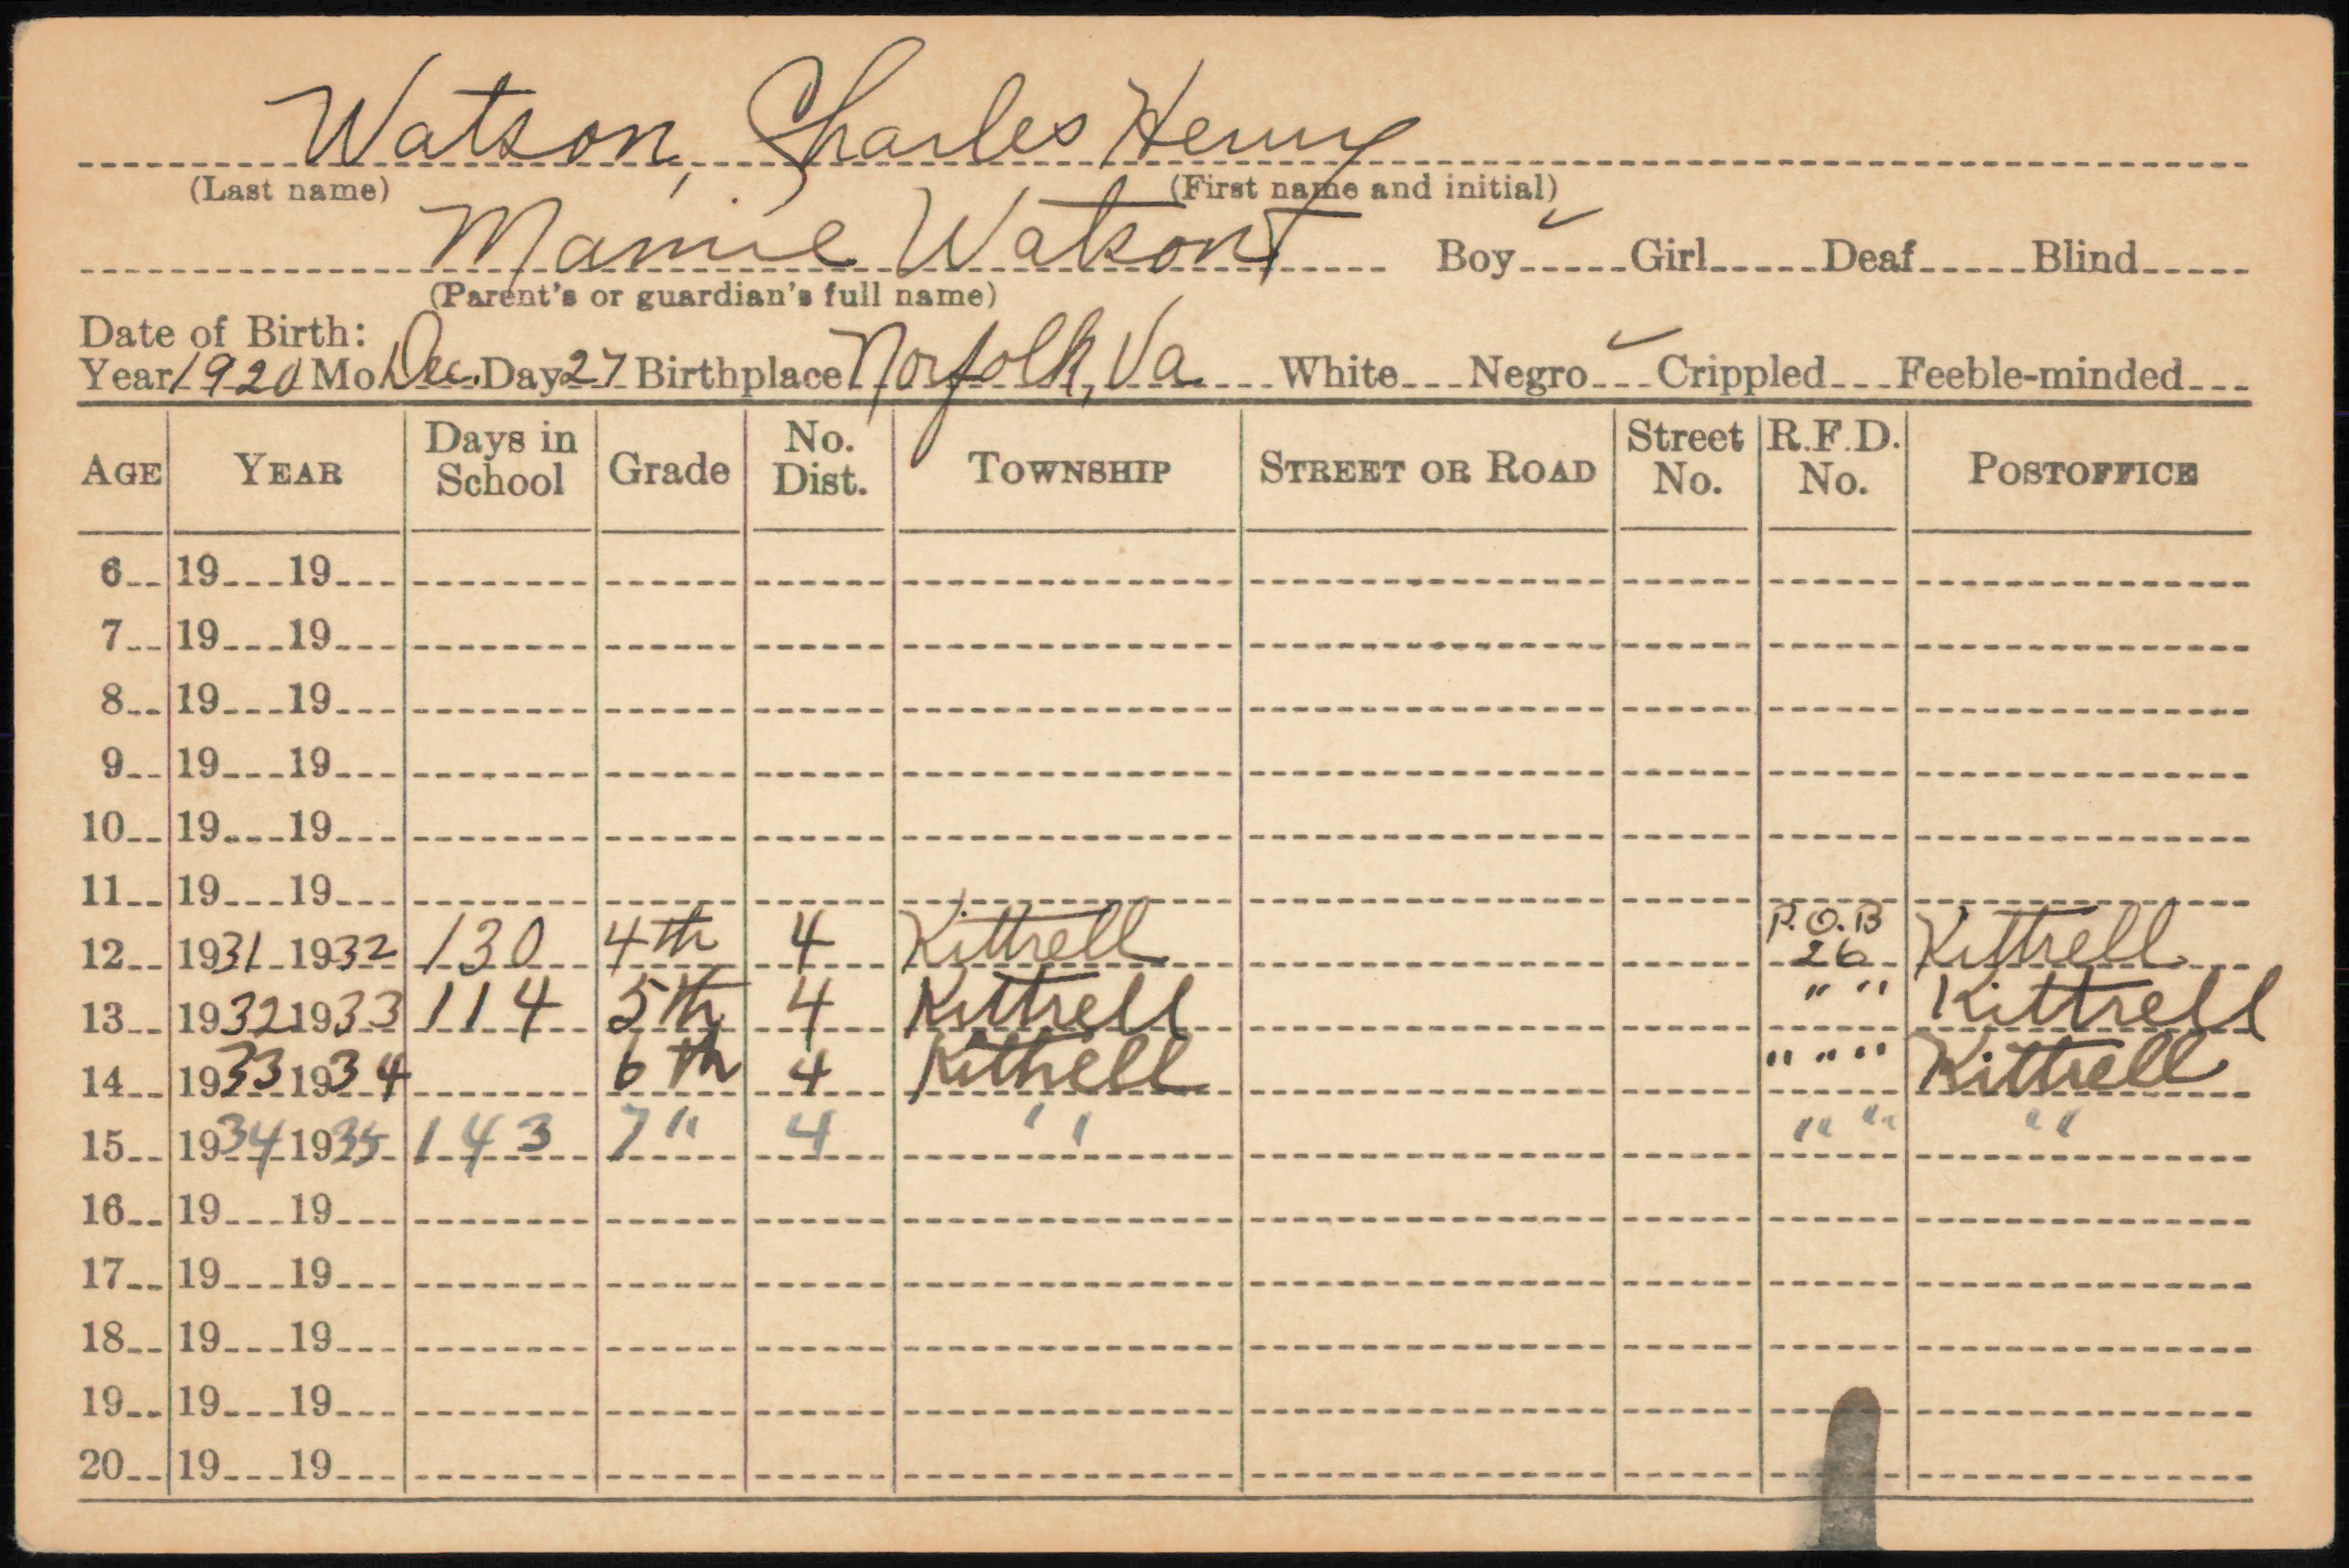 Watson, Charles Henry
(Last name) (First name and initial)
Mamie Watson Boy ✓ Girl Deaf Blind
(Parent's or guardian's full name)
Date of Birth:
Year 1920 Mo. Dec. Day 27 Birthplace Norfolk, Va. White Negro ✓ Crippled Feeble-minded
AGE YEAR Days in School Grade No. Dist. TOWNSHIP STREET OR ROAD Street No. R.F.D. No. POSTOFFICE
6 19 19
7 19 19
8 19 19
9 19 19
10 19 19
11 19 19
12 1931 1932 130 4th 4 Kittrell P.O.B 26 Kittrell
13 1932 1933 114 5th 4 Kittrell " " Kittrell
14 1933 1934 6th 4 Kittrell " " " Kittrell
15 1934 1935 143 7 " 4 " " " "
16 19 19
17 19 19
18 19 19
19 19 19
20 19 19